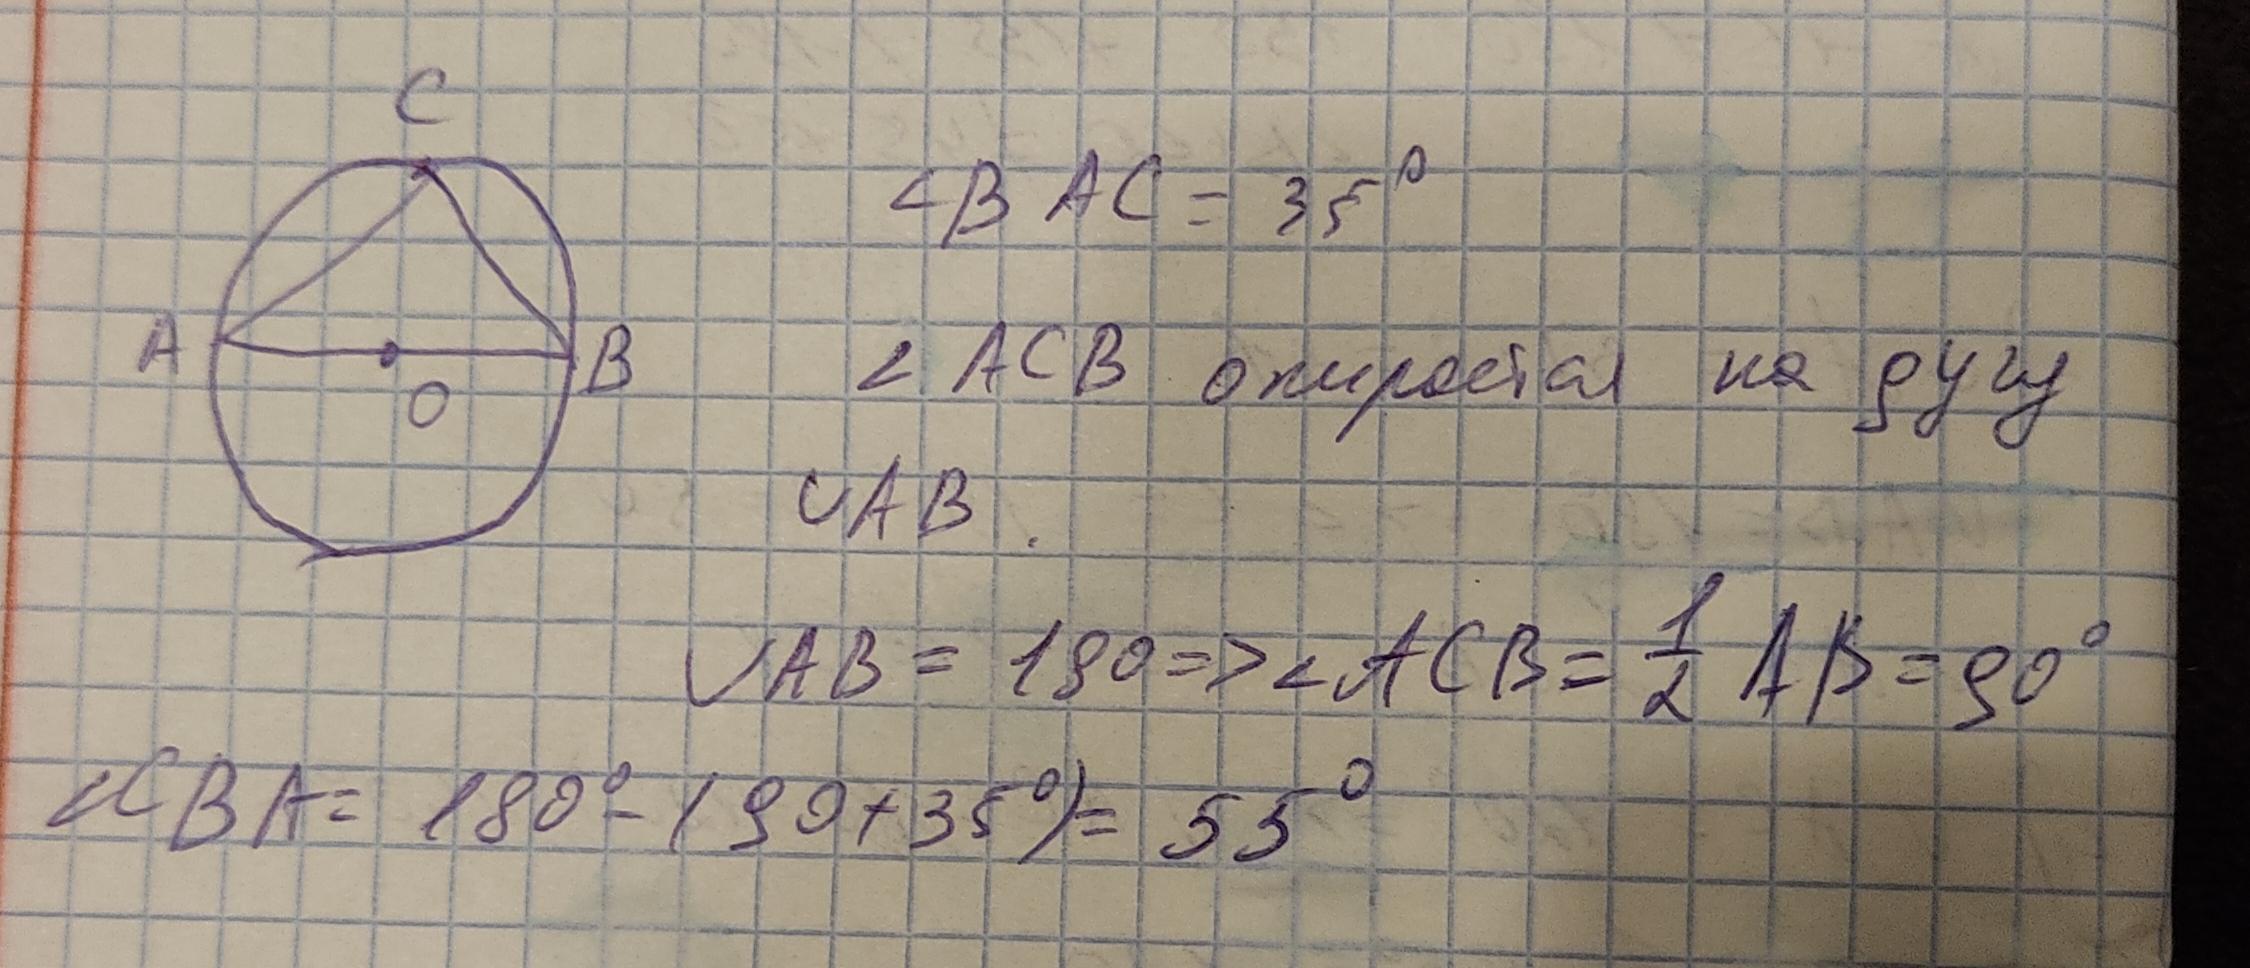 C
A
B
O
<BAC = 35°
< ACB опирается на дугу
∪AB.
∪AB = 180 => <ACB = 1/2 AB = 90°
<CBA = 180° - (90 + 35°) = 55°